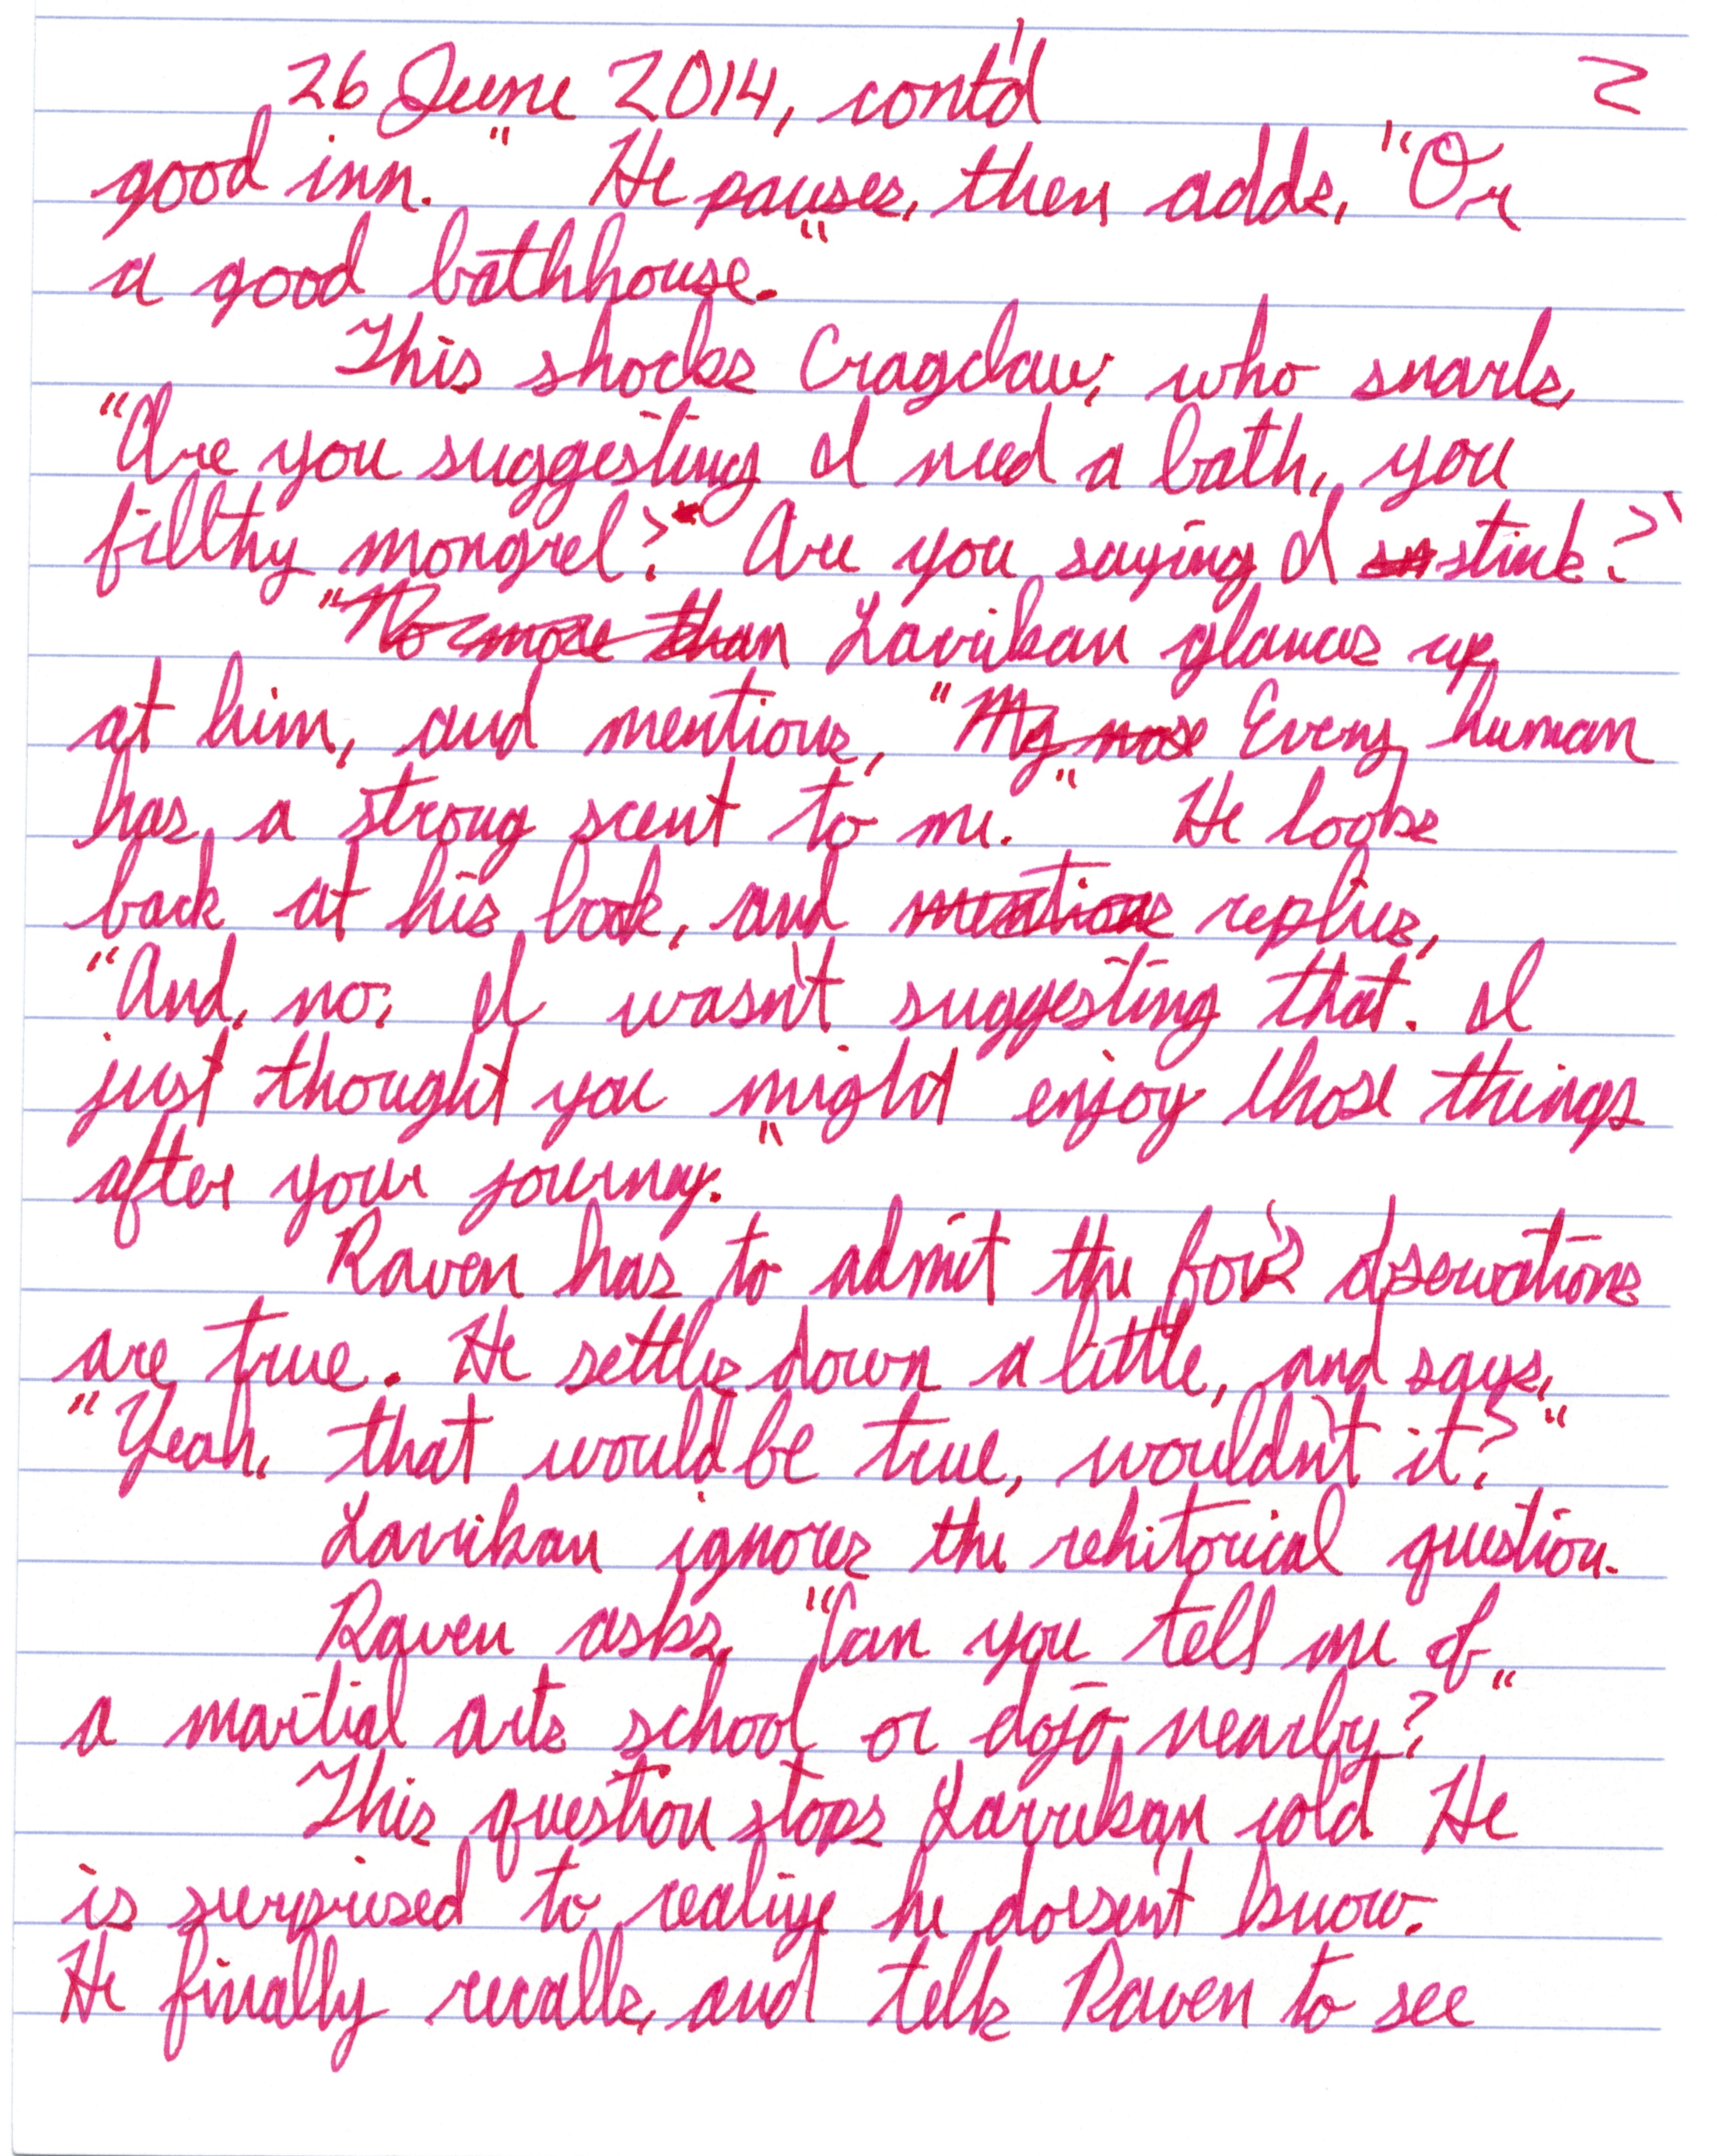 26 June 2014, cont'd 2
good inn." He pauses, then adds, "Or
a good bathhouse."
This shocks Cragclaw, who snarls,
"Are you suggesting I need a bath, you
filthy mongrel? Are you saying I stink?"
Lavrikan glances up
at him, and mentions, "Every human
has a strong scent to me." He looks
back at his book, and replies,
"And, no, I wasn't suggesting that. I
just thought you might enjoy those things
after your journey."
Raven has to admit the fox's observations
are true. He settles down a little, and says,
"Yeah, that would be true, wouldn't it?"
Lavrikan ignores the rehitorical question.
Raven asks, "Can you tell me of
a martial arts school or dojo nearby?"
This question stops Lavrikan cold. He
is surprised to realize he doesn't know.
He finally recalls, and tells Raven to see